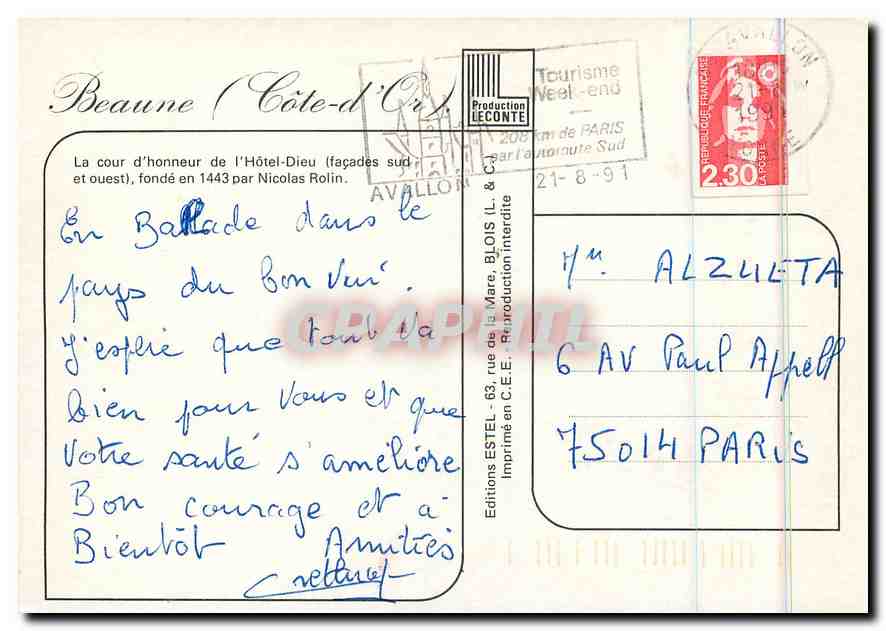 Beaune (Côte-d'Or).
La cour d'honneur de l'Hôtel-Dieu (façades sud
et ouest), fondé en 1443 par Nicolas Rolin.
En Ballade dans le
pays du bon vin.
J'espère que tout va
bien pour vous et que
votre santé s'améliore
Bon courage et à
Bientôt Amitiés
Production
LECONTE
Editions ESTEL - 63, rue de la Mare, BLOIS (L. & C.)
Imprimé en C.E.E. - Reproduction interdite
AVALLON
Tourisme
Week-end
208 km de PARIS
par l'autoroute Sud
21-8-91
AVALLON
REPUBLIQUE FRANÇAISE
2,30
LA POSTE
ALZUETA
6 AV Paul Appell
75014 PARIS
CPAPHIL